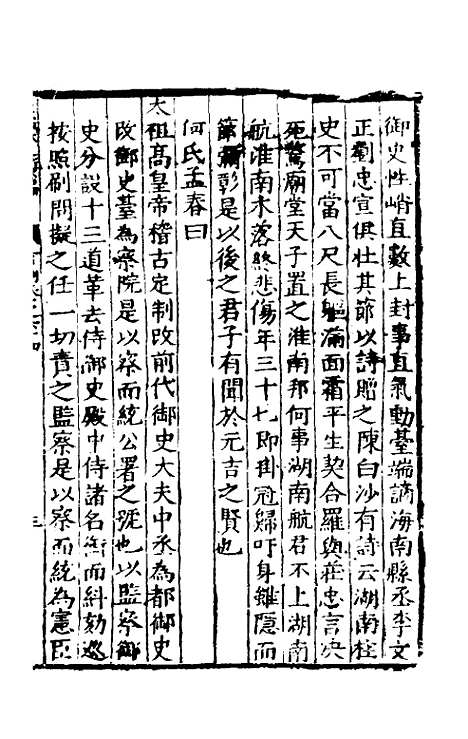 御史性峭直數上封事直氣動臺端謫海南縣丞李文
正劉忠宣俱壯其節以詩贈之陳白沙有詩云湖南柱
史不可當八尺長軀滿面霜平生契合羅與莊忠言决
死驚廟堂天子置之淮南邦何事湖南航君不上湖南
航淮南木落終悲傷年三十七即掛冠歸吁身雖隱而
節彌彰是以後之君子有聞於元吉之賢也
何氏孟春曰
太祖高皇帝稽古定制改前代御史大夫中丞為都御史
改御史臺為察院是以察而統公署之號也以監察御
史分設十三道革去侍御史殿中侍諸名銜而糾劾巡
按照刷問擬之任一切責之監察是以察而統為憲臣
三